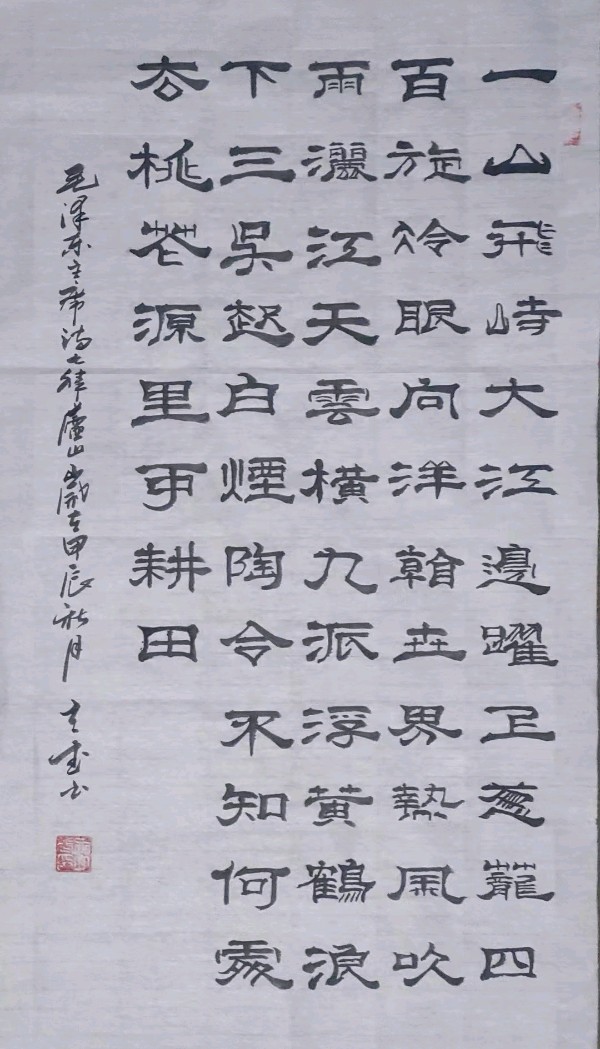 一山飛峙大江邊躍上葱蘢四
百旋冷眼向洋看世界熱風吹
雨灑江天雲橫九派浮黄鶴浪
下三吴起白煙陶令不知何處
去桃花源里可耕田
毛泽东主席诗七律廬山歲在甲辰秋月
书